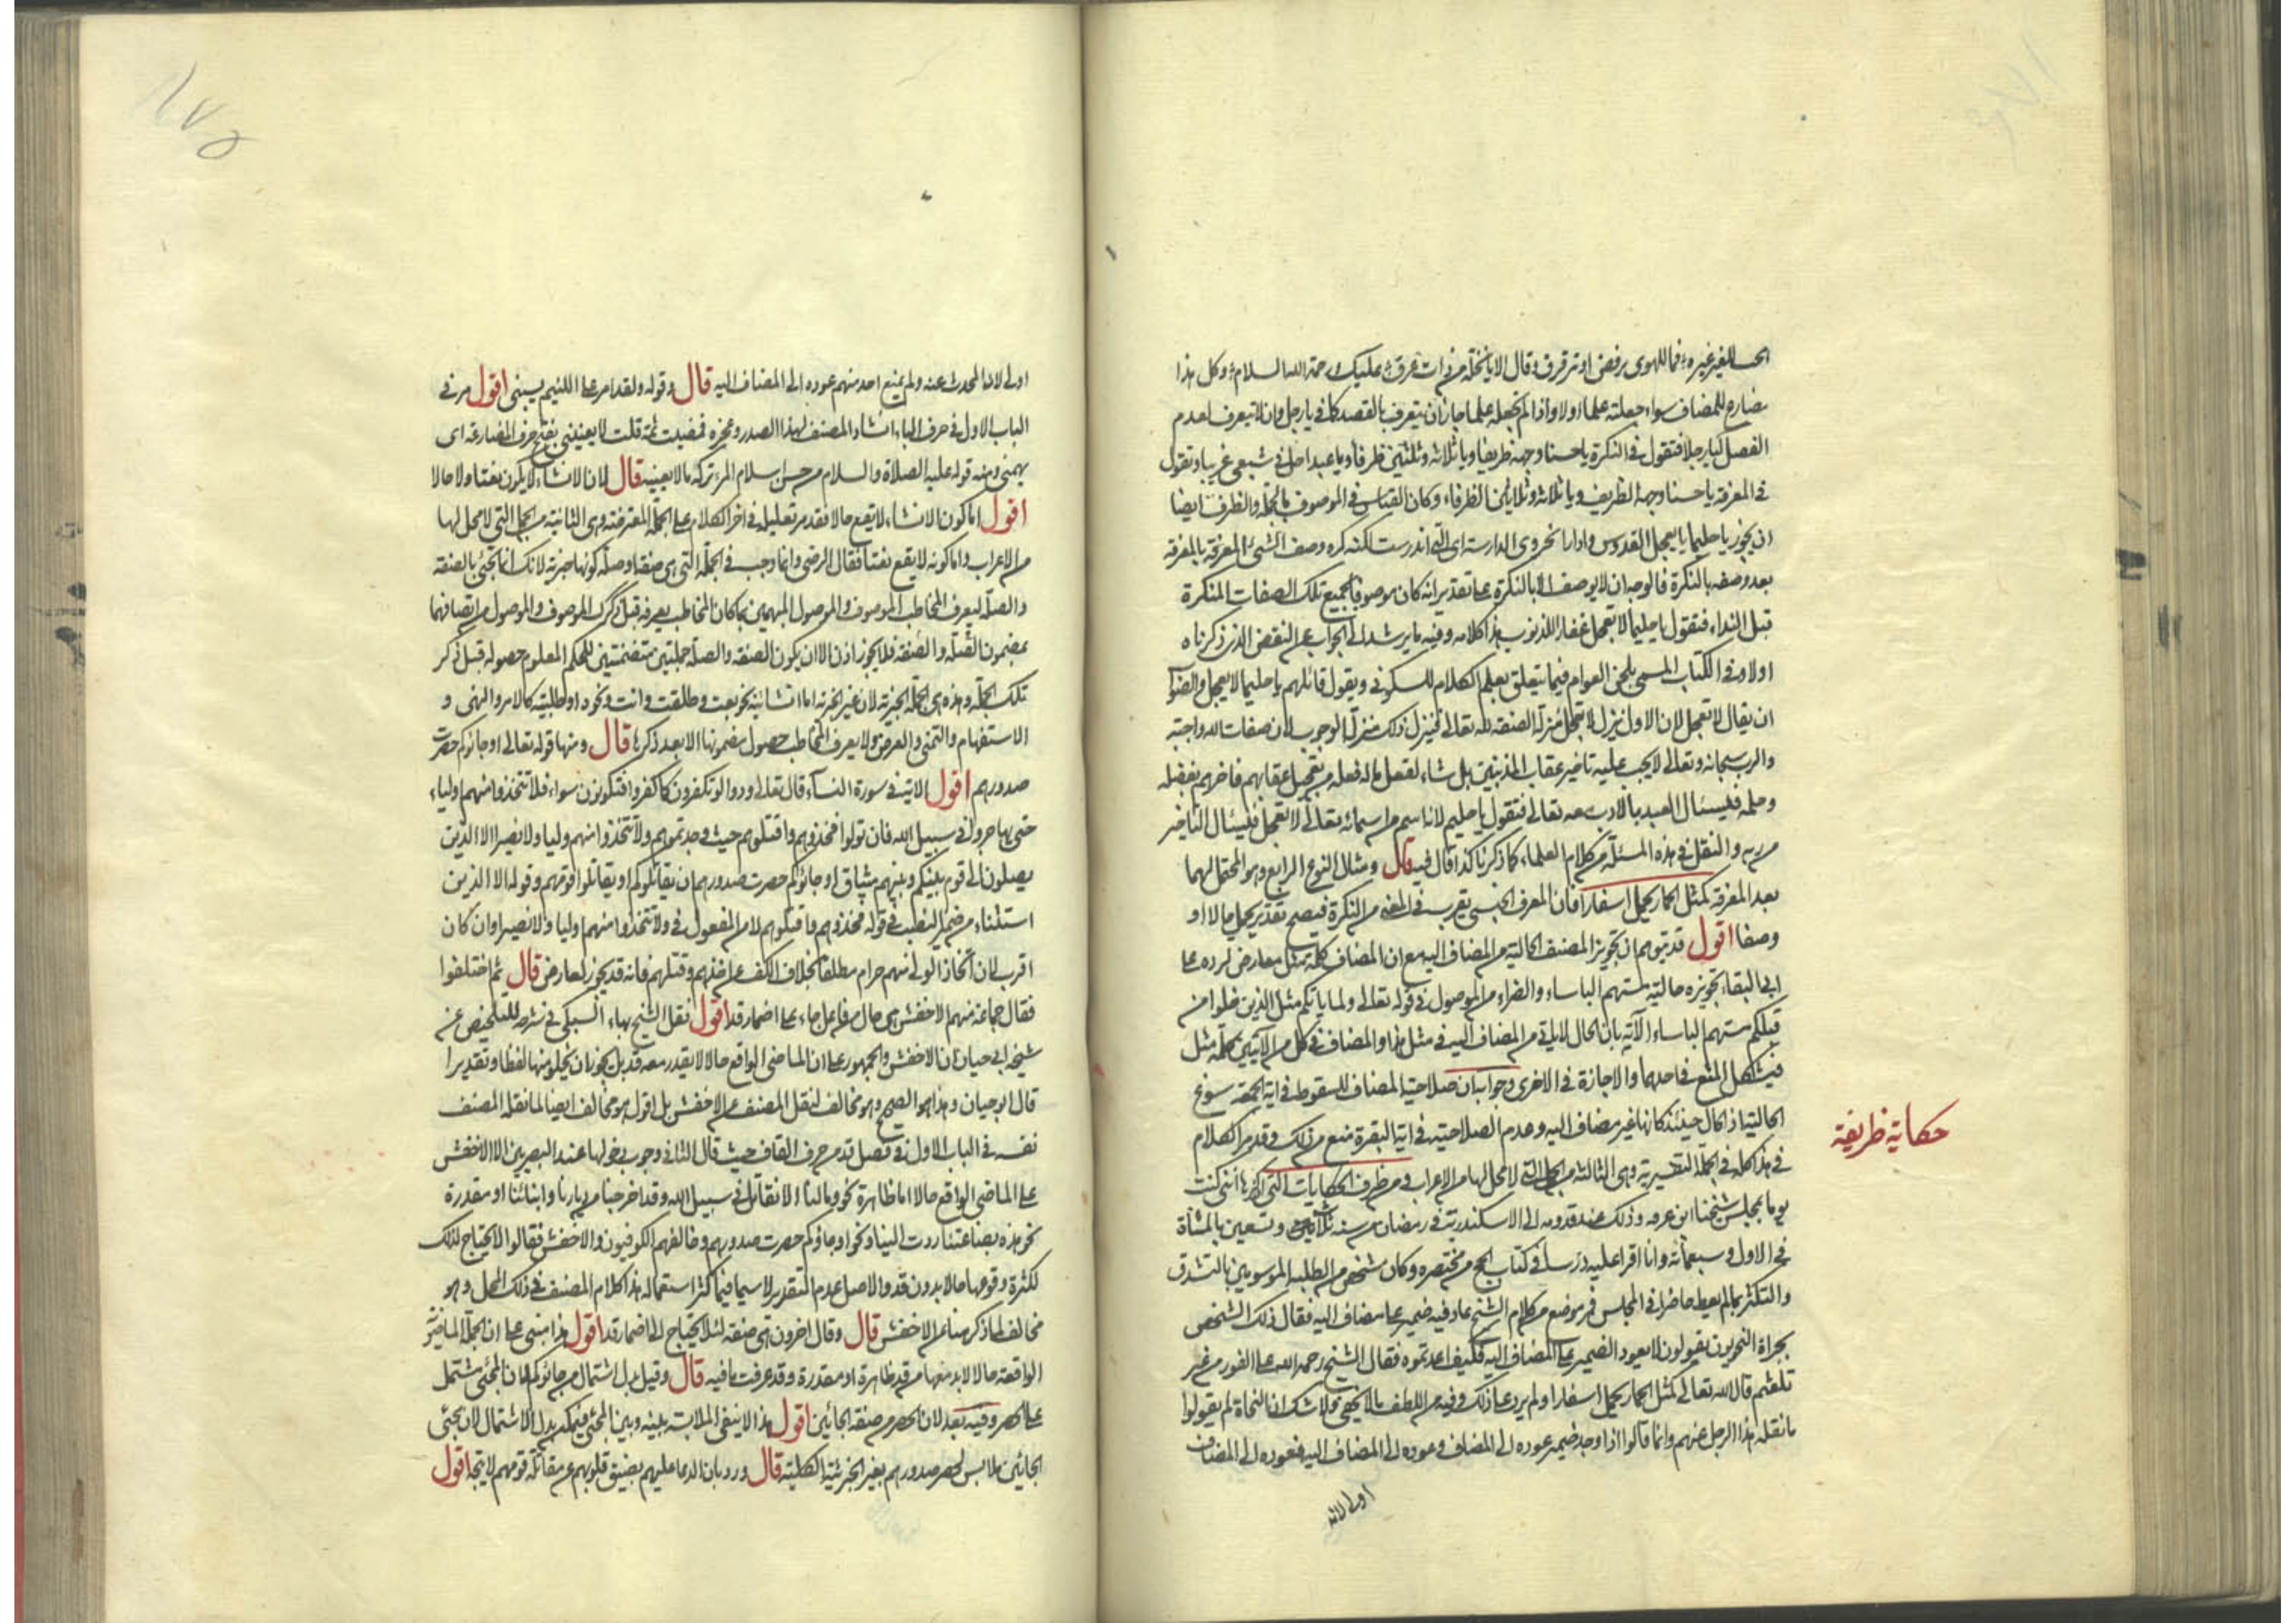 مضارع للمضاف سواء جعلته علما اولا واذا لم تجعله علما جاز ان يتعرف بالقصد كما في يا رجل وان لا يتعرف لعدم
الفصل كيا رجلا فتقول في النكرة يا حسنا وجهه ظريفا ويا ثلاثة وثلثين ظرفاء ويا عبد احل في شعبى غريبا وتقول
في المعرفة يا حسنا وجهه الظريف ويا ثلاثة وثلاثين الظرفاء وكان القياس في الموصوف بالجملة والظرف ايضا
ان يجوز يا حليما لا يعجل القدوس وادارا بحزوى الدارسة اى التى اندرست لكنه كره وصف الشئ المعرفة بالمعرفة
بعد وصفه بالنكرة فالوجه ان لا يوصف الا بالنكرة على تقدير انه كان موصوفا بجميع تلك الصفات المنكرة
قبل النداء فتقول يا حليما لا يعجل غفارا للذنوب هذا كلامه وفيه ما يرشد الى الجواب عن النقض الذى ذكرناه
اولا وفى الكتاب المسمى بلحن العوام فيما يتعلق بعلم الكلام للسكونى ويقول قائلهم يا حليما لا يعجل والصواب
ان يقال لا تعجل لان الاول ينزل لا يعجل منزلة الصفة لله تعالى فينزل ذلك منزلة الوجوب لان صفات الله واجبة
والرب سبحانه وتعالى لا يجب عليه تاخير عقاب المذنبين بل شاء لفعل ماله فعله من تعجيل عقابهم فاخرهم بفضله
وحلمه فليسئال العبد بالادب معه تعالى فتقول يا حليم لانه اسم من اسمائه تعالى لا تعجل فليسئال التاخير
من ربه والنقل فى هذه المسئلة من كلام العلماء كما ذكرنا كذا قال فيه قال ومثال النوع الرابع وهو المحتمل لهما
بعد المعرفة كمثل الحمار يحمل اسفارا فان المعرف الجنسى يقرب فى المعنى من النكرة فيصح تقدير يحمل حالا او
وصفا اقول قد يتوهم ان تجويز المصنف الحالية من المضاف اليه مع ان المضاف كلمة مثل معارض لرده على
ابى البقاء تجويزه حالية مستهم الباساء والضراء من الموصول فى قوله تعالى ولما ياتكم مثل الذين خلوا من
قبلكم مستهم الباساء الآية بان الحال لا ياتى من المضاف اليه فى مثل هذا والمضاف فى كل من الآيتين كلمة مثل
فيشكل المنع فى احدهما والاجازة فى الاخرى وجوابه ان صلاحية المضاف للسقوط فى اية الجمعة سوغ
الحالية اذ الحال حينئذ كانها غير مضاف اليه وعدم الصلاحية فى اية البقرة منع من ذلك وقد مر الكلام
فى هذا كله فى الجملة التفسيرية وهى الثالثة من الجمل التى لا محل لها من الاعراب ومن ظرف الحكايات التى اذكرها اننى كنت
يوما بمجلس شيخنا ابن عرفه وذلك عند قدومه الى الاسكندرية فى رمضان من سنة ثلاث وتسعين بالمثناة
فى الاول وسبعمائة وانا اقرا عليه درسا فى كتاب الحج من مختصره وكان شخص من الطلبة الموسومين بالتشدق
والتكثر بما لم يعط حاضرا فى المجلس فمر موضع من كلام الشيخ عاد فيه ضمير على مضاف اليه فقال ذلك الشخص
بجراة النحويون يقولون لا يعود الضمير على المضاف اليه فكيف اعدتموه فقال الشيخ رحمه الله على الفور من غير
تلعثم قال الله تعالى كمثل الحمار يحمل اسفارا ولم يزد على ذلك وفيه من اللطف ما لا يخفى ولا شك ان النحاة لم يقولوا
ما نقله هذا الرجل عنهم وانما قالوا اذا وجد ضمير عوده الى المضاف وعوده الى المضاف اليه فعوده الى المضاف
حكاية ظريفة
اولى لانه
اولى لانه المحدث عنه ولم يمنع احد منهم عوده الى المضاف اليه قال وقوله ولقد امر على اللئيم يسبنى اقول مر فى
الباب الاول فى حرف الباء انشاد المصنف لهذا الصدر وعجزه فمضيت ثمة قلت لا يعنينى بفتح حرف المضارعة اى
يهمنى ومنه قوله عليه الصلاة والسلام من حسن اسلام المرء تركه ما لا يعنيه قال لان الانشاء لا يكون نعتا ولا حالا
اقول اما كون الانشاء لا يقع حالا فقد مر تعليله فى اخر الكلام على الجملة المعترضة وهى الثانية من الجمل التى لا محل لها
من الاعراب واما كونه لا يقع نعتا فقال الرضى وانما وجب فى الجملة التى هى صفة او صلة كونها خبرية لانك انما تجئ بالصفة
والصلة ليعرف المخاطب الموصوف والموصول المبهمين بما كان المخاطب يعرفه قبل ذكرك الموصوف والموصول من اتصافهما
بمضمون الصلة والصفة فلا يجوز اذن الا ان يكون الصفة والصلة جملتين متضمنتين للحكم المعلوم حصوله قبل ذكر
تلك الجملة وهذه هى الجملة الخبرية لان غير الخبرية اما انشائية نحو بعت وطلقت وانت ونحوه او طلبية كالامر والنهى و
الاستفهام والتمنى والعرض ولا يعرف المخاطب حصول مضمونها الا بعد ذكرها قال ومنها قوله تعالى او جاؤكم حصرت
صدورهم اقول الاية فى سورة النساء قال تعالى ودوا لو تكفرون كما كفروا فتكونون سواء فلا تتخذوا منهم اولياء
حتى يهاجروا فى سبيل الله فان تولوا فخذوهم واقتلوهم حيث وجدتموهم ولا تتخذوا منهم وليا ولا نصيرا الا الذين
يصلون الى قوم بينكم وبينهم ميثاق او جاؤكم حصرت صدورهم ان يقاتلوكم او يقاتلوا قومهم وقوله الا الذين
استثناء من ضمير النصب فى قوله فخذوهم واقتلوهم لا من المفعول فى ولا تتخذوا منهم وليا ولا نصيرا وان كان
اقرب لان اتخاذ الولى منهم حرام مطلقا بخلاف الكف عن اخذهم وقتلهم فانه قد يجوز لعارض قال ثم اختلفوا
فقال جماعة منهم الاخفش هى حال من فاعل جاء على اضمار قد اقول نقل الشيخ بهاء السبكى فى شرحه للتلخيص عن
شيخه ابى حيان ان الاخفش والجمهور على ان الماضى الواقع حالا لا يقدر معه قد بل يجوز ان يخلو منها لفظا وتقديرا
قال ابو حيان وهذا هو الصحيح وهو مخالف لنقل المصنف عن الاخفش بل اقول هو مخالف ايضا لما نقله المصنف
نفسه فى الباب الاول فى فصل قد من حرف القاف حيث قال الثانى وجوب دخولها عند البصريين الا الاخفش
على الماضى الواقع حالا اما ظاهرة نحو وما لنا الا نقاتل فى سبيل الله وقد اخرجنا من ديارنا وابنائنا او مقدرة
نحو هذه بضاعتنا ردت الينا ونحو او جاؤكم حصرت صدورهم وخالفهم الكوفيون والاخفش فقالوا لا تحتاج لذلك
لكثرة وقوعها حالا بدون قد والاصل عدم التقدير لا سيما فيما كثر استعماله هذا كلام المصنف فى ذلك المحل وهو
مخالف لما ذكر هنا عن الاخفش قال وقال اخرون هى صفة لئلا يحتاج الى اضمار قد اقول هذا مبنى على ان الجملة الماضية
الواقعة حالا لا بد معها من قد ظاهرة او مقدرة وقد عرفت ما فيه قال وقيل بدل اشتمال من جاؤكم لان المجئ مشتمل
على الحصر وفيه بعد لان الحصر من صفة الجائين اقول هذا لا ينفى الملابسة بينه وبين المجئ فيمكن بدل الاشتمال لان مجئ
الجائين ملابس لحصر صدورهم بغير الجزئية والكلية قال ورد بان الدعاء عليهم بضيق قلوبهم عن مقاتلة قومهم لا يتجه اقول